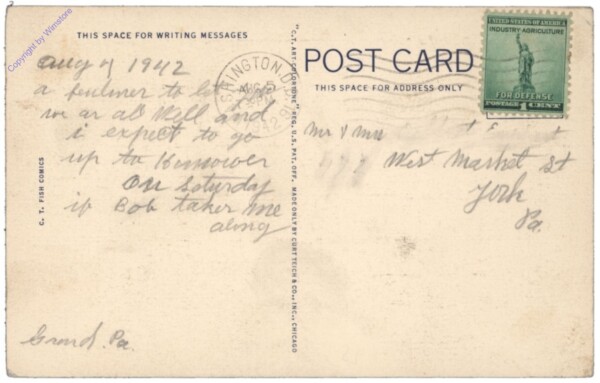 Copyright by Wimstore
THIS SPACE FOR WRITING MESSAGES
Aug 4 1942
a
to let
we ar all Well and
i expect to go
up to
On Saturday
if Bob takes me
along
Grand. Pa.
C. T. FISH COMICS
"C.T. ART-COLORTONE" REG. U.S. PAT. OFF. MADE ONLY BY CURT TEICH & CO., INC., CHICAGO
POST CARD
THIS SPACE FOR ADDRESS ONLY
UNITED STATES OF AMERICA
INDUSTRY-AGRICULTURE
FOR DEFENSE
POSTAGE 1 CENT
AUG 5
1942
Mr & Mrs
West Market St
York
Pa.